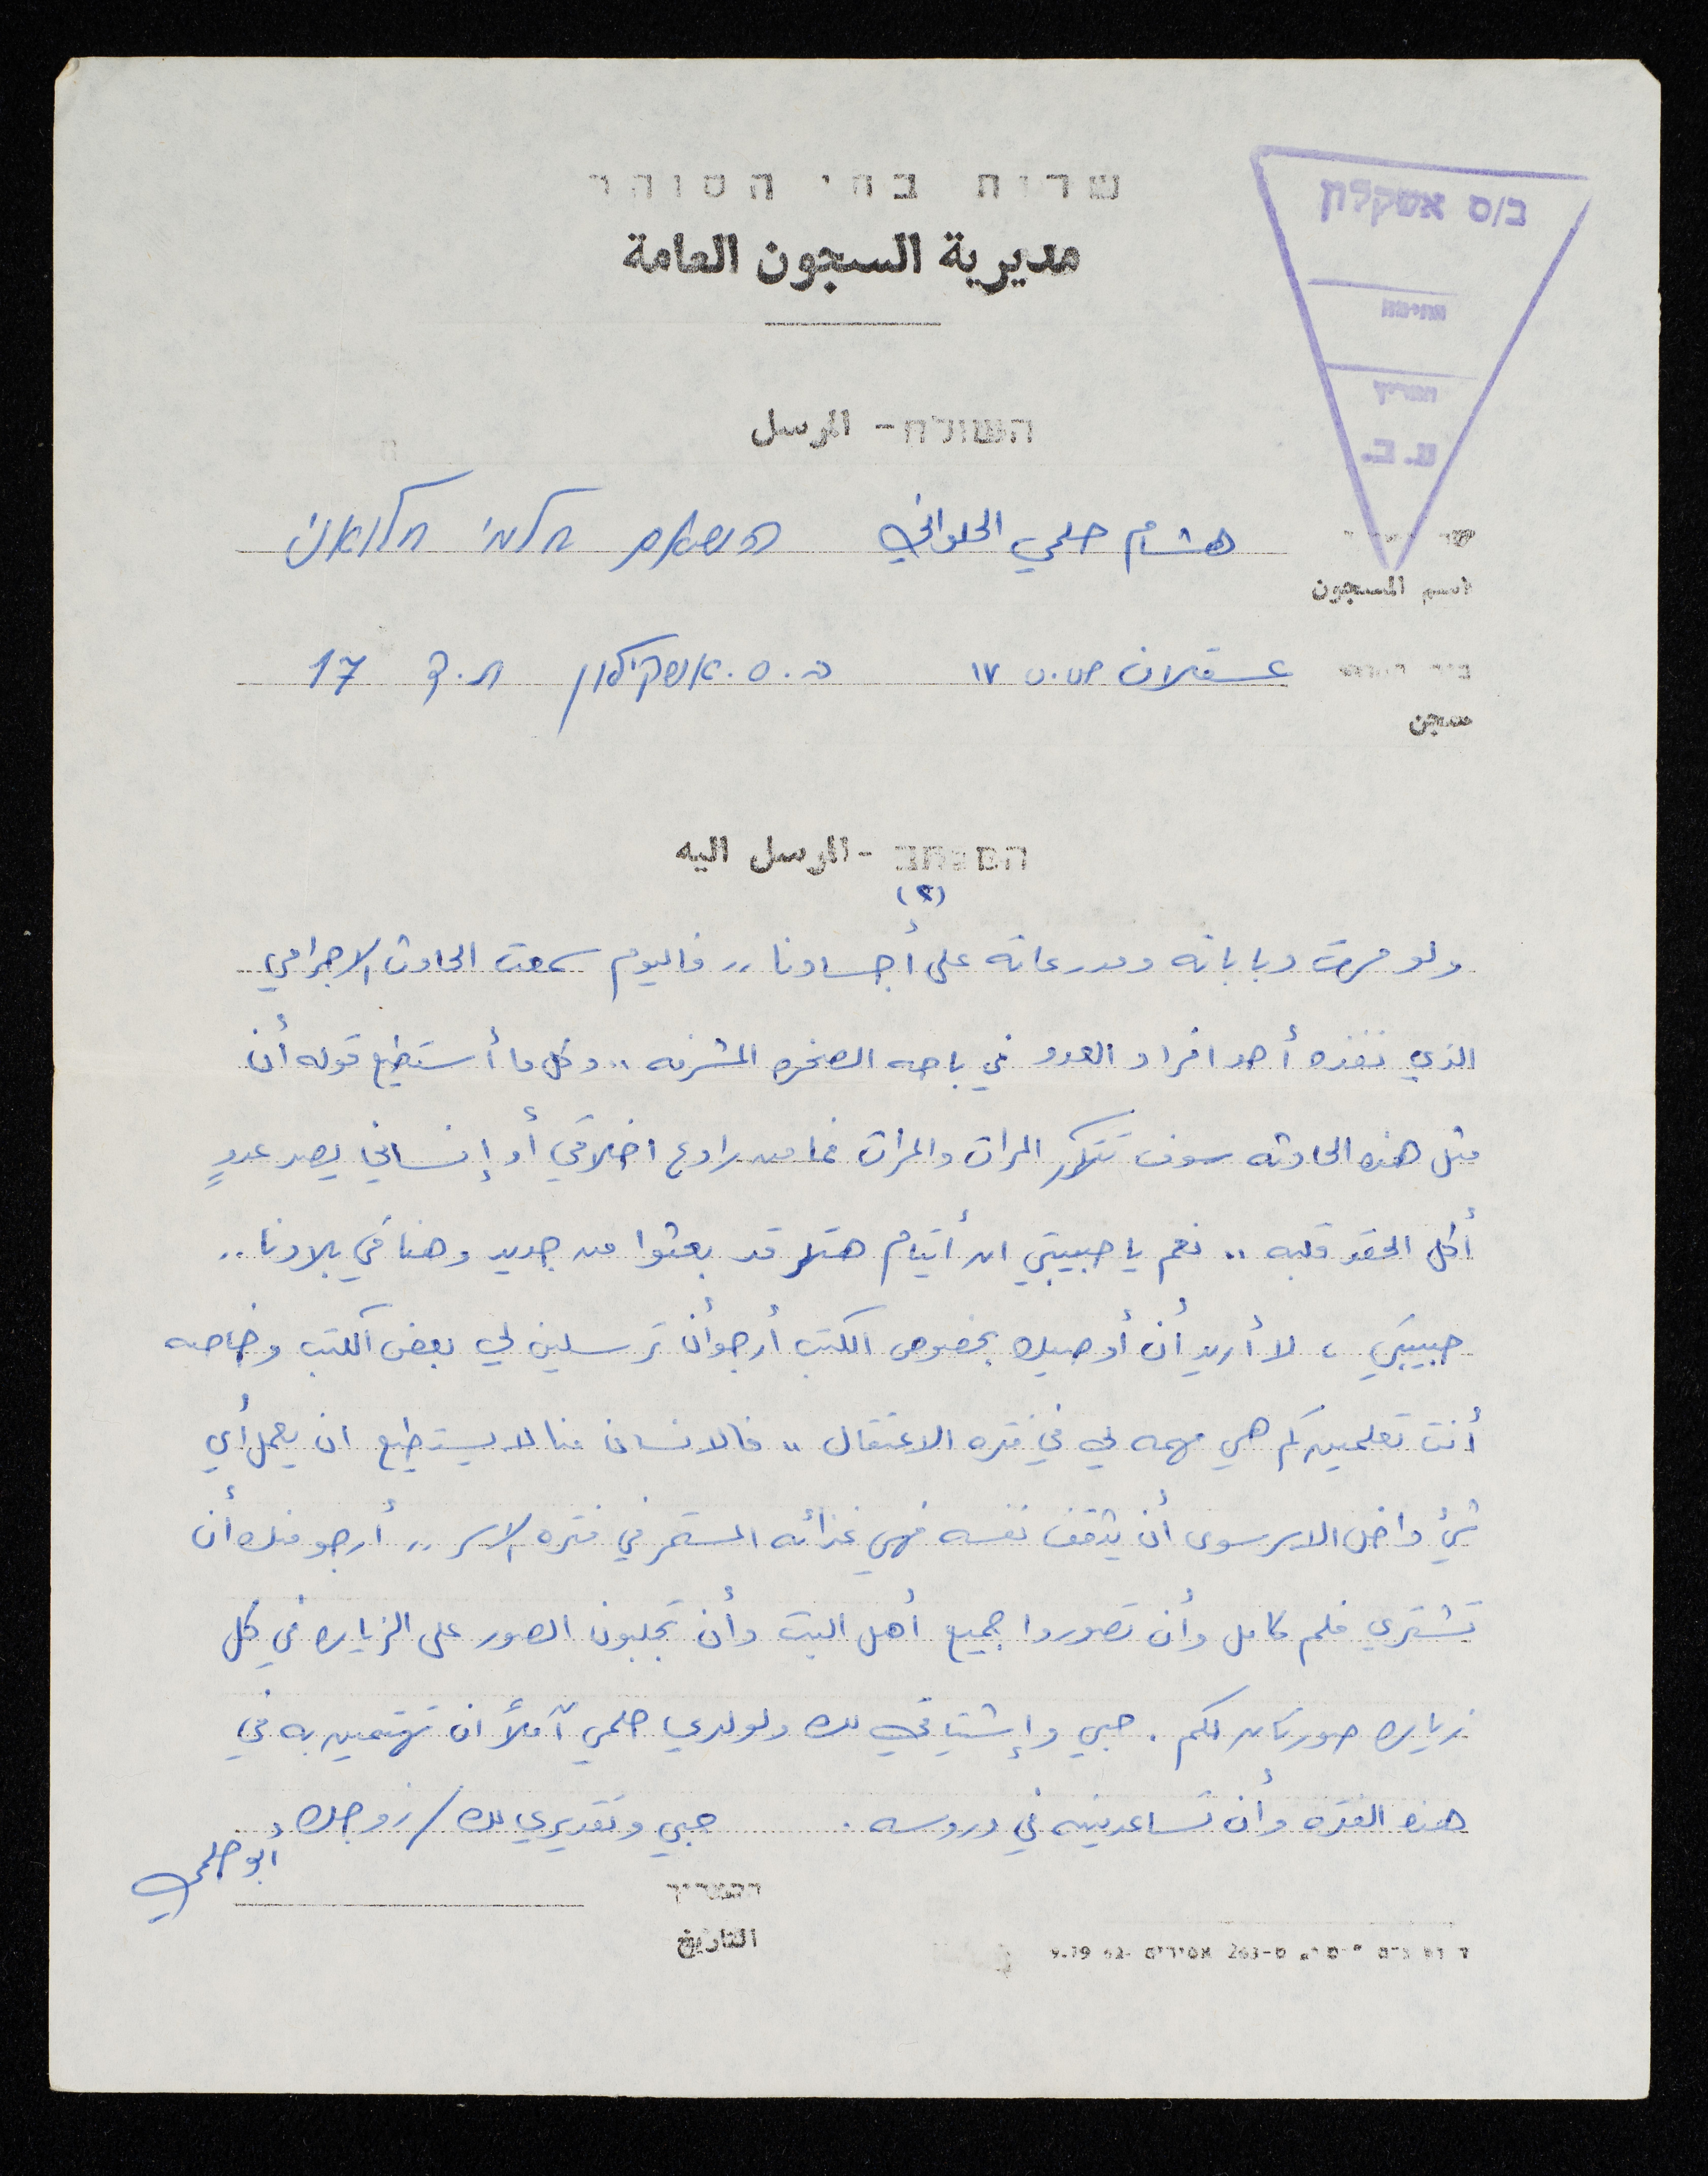 שרות בתי הסוהר
مديرية السجون العامة
ב/ס אשקלון
ת.ב.
השולח - المرسل
هشام حلمي الحلواني הישאם חלמי חלואני
اسم المسجون
عسقلان ص.ب ١٧ ב.ס. אשקילון ת.ד 17
سجن
המכתב - المرسل اليه
(٢)
ولو مرت دباباته ومدرعاته على أجسادنا .. فاليوم سمعت الحادث الاجرامي
الذي نفذه أحد افراد العدو في باحه الصخره المشرفه .. وكل ما أستطيع قوله أن
مثل هذه الحادثه سوف تتكرر المرات والمرات فما من رادع اخلاقي أو إنساني يصد عدوٍ
أكل الحقد قلبه .. نعم يا حبيبتي ان أيتام هتلر قد بعثوا من جديد وهنا في بلادنا ..
حبيبتي ، لا أريد أن أوصيك بخصوص الكتب أرجو أن ترسلين لي بعض الكتب وخاصه
أنت تعلمين كم هي مهمه لي في فتره الاعتقال .. فالانسان منا لا يستطيع ان يعمل أي
شيء داخل الاسر سوى أن يثقف نفسه فهي غذائه المستمر في فتره الاسر .. أرجو منك أن
تشتري فلم كامل وأن تصوروا جميع أهل البيت وأن تجلبون الصور على الزياره في كل
زياره صورتان لكم . حبي وإشتياقي لك ولولدي حلمي آملاً ان تهتمين به في
هذه الفتره وأن تساعدينه في دروسه . حبي وتقديري لك / زوجك
أبو حلمي
התאריך
التاريخ